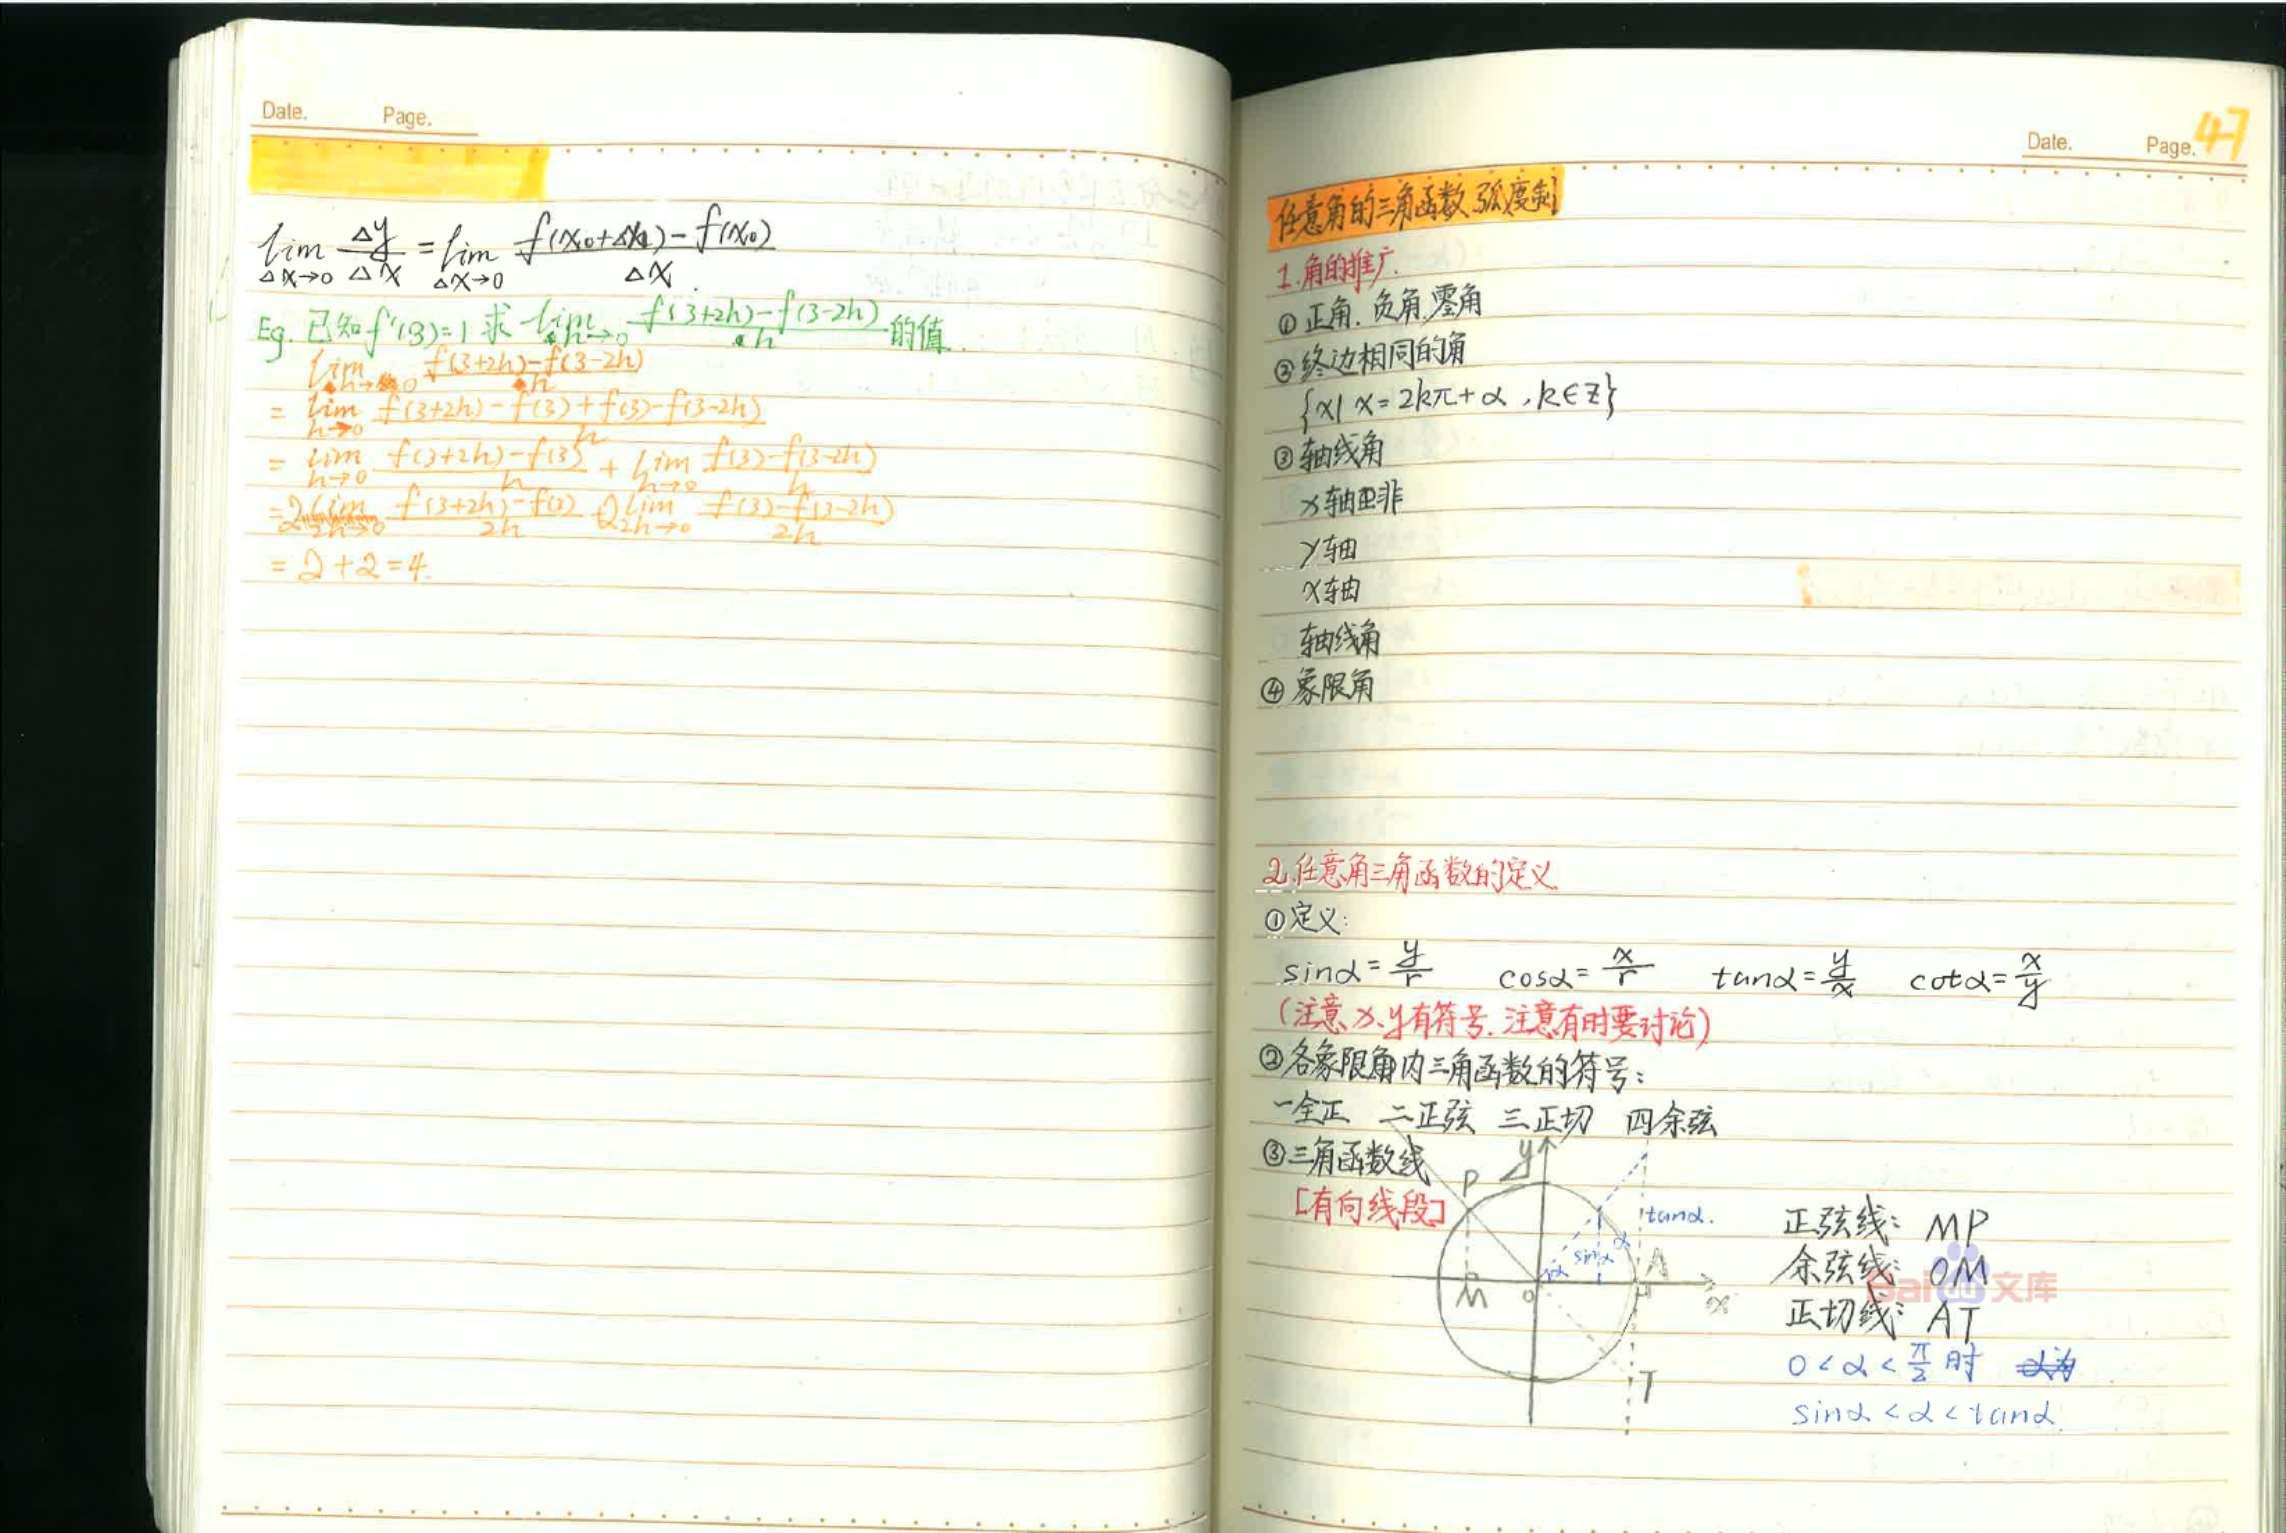 Date. Page.
lim Δx→0 Δy/Δx = lim Δx→0 f(x₀+Δx)-f(x₀)/Δx.
Eg. 已知f'(3)=1 求 lim h→0 f(3+2h)-f(3-2h)/h 的值.
lim h→0 f(3+2h)-f(3-2h)/h
= lim h→0 f(3+2h)-f(3)+f(3)-f(3-2h)/h
= lim h→0 f(3+2h)-f(3)/h + lim h→0 f(3)-f(3-2h)/h
=2 lim 2h→0 f(3+2h)-f(3)/2h 2 lim 2h→0 f(3)-f(3-2h)/2h
= 2+2=4.
Date. Page. 47
任意角的三角函数 弧度制
1.角的推广.
①正角.负角.零角
②终边相同的角
{x|x=2kπ+α,k∈Z}
③轴线角
x轴正非
y轴
x轴
轴线角
④象限角
2.任意角三角函数的定义
①定义:
sinα=y/r cosα=x/r tanα=y/x cotα=x/y
(注意x、y有符号.注意有时要讨论)
②各象限角内三角函数的符号:
一全正 二正弦 三正切 四余弦
③三角函数线
[有向线段]
y
P
tanα.
α
sinα
α
A
M
O
x
T
正弦线: MP
余弦线: OM
正切线: AT
0<α<π/2时
sinα<α<tanα
Bai文库